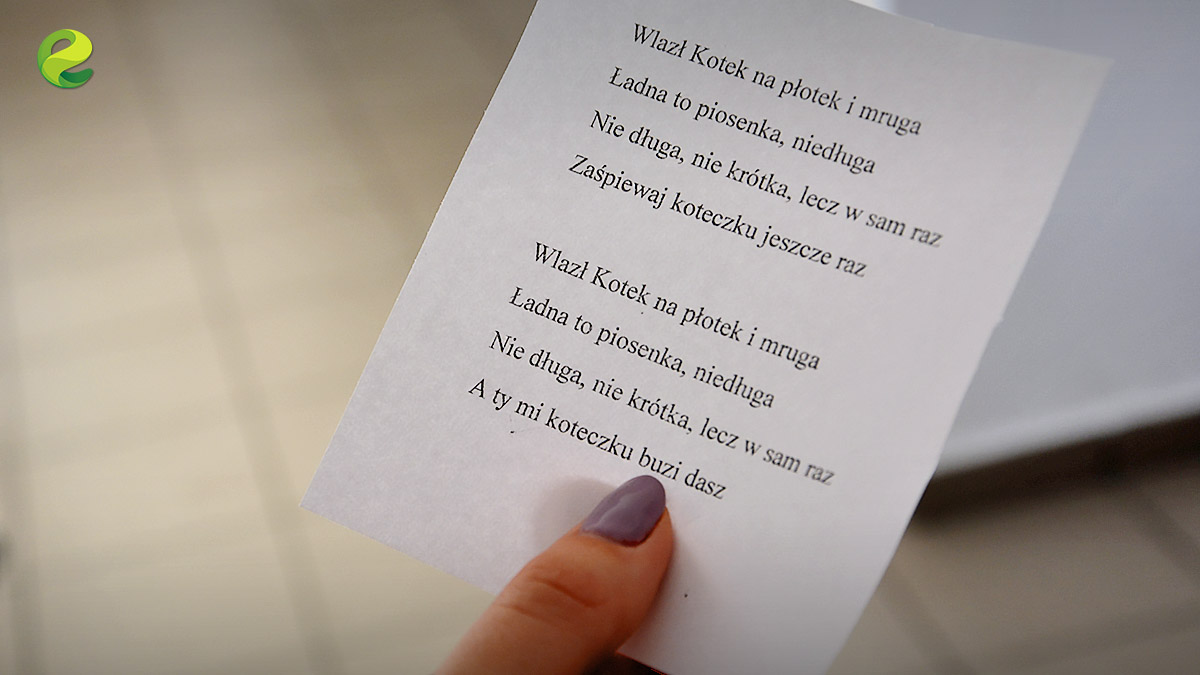 Wlazł Kotek na płotek i mruga
Ładna to piosenka, niedługa
Nie długa, nie krótka, lecz w sam raz
Zaśpiewaj koteczku jeszcze raz
Wlazł Kotek na płotek i mruga
Ładna to piosenka, niedługa
Nie długa, nie krótka, lecz w sam raz
A ty mi koteczku buzi dasz